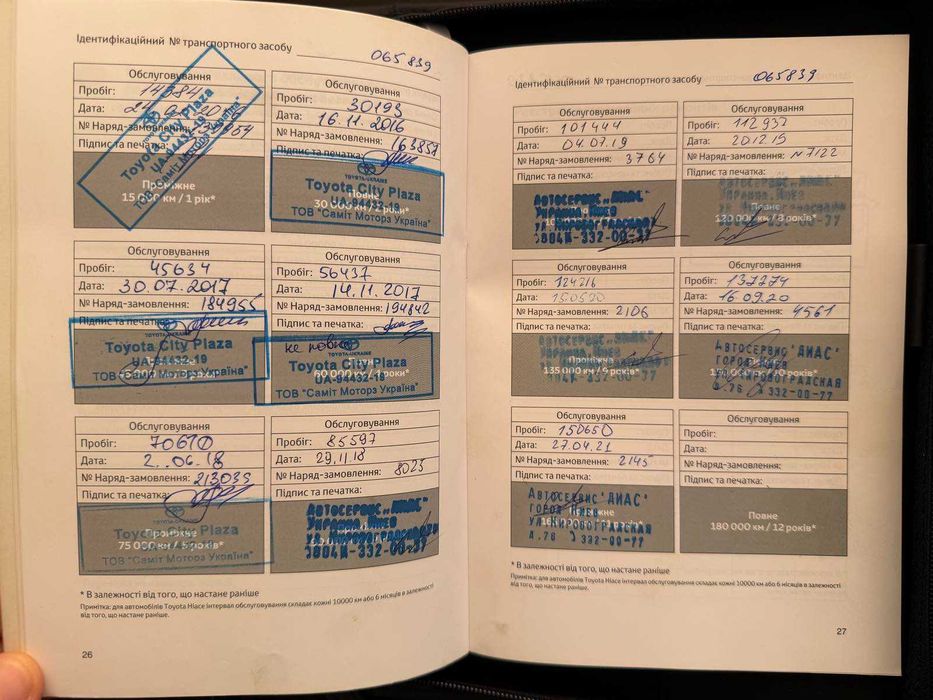 Ідентифікаційний № транспортного засобу 065839
Обслуговування
Пробіг: 14984
Дата: 24
№ Наряд-замовлення:
Підпис та печатка:
Toyota City Plaza
UA-94432-19
ТОВ "Саміт Моторз Україна"
Проміжне
15 000 км / 1 рік*
Обслуговування
Пробіг: 30193
Дата: 16.11.2016
№ Наряд-замовлення: 163857
Підпис та печатка:
TOYOTA-UKRAINE
Toyota City Plaza
UA-94432-19
ТОВ "Саміт Моторз Україна"
Обслуговування
Пробіг: 45634
Дата: 30.07.2017
№ Наряд-замовлення: 184955
Підпис та печатка:
Toyota City Plaza
UA-94432-19
ТОВ "Саміт Моторз Україна"
Обслуговування
Пробіг: 56437
Дата: 14.11.2017
№ Наряд-замовлення: 194842
Підпис та печатка:
не повне
TOYOTA-UKRAINE
Toyota City Plaza
UA-94432-19
60 000 км / 4 роки*
ТОВ "Саміт Моторз Україна"
Обслуговування
Пробіг: 70610
Дата: 2..06.18
№ Наряд-замовлення: 213039
Підпис та печатка:
TOYOTA-UKRAINE
Toyota City Plaza
Проміжне
UA-94432-19
75 000 км / 5 років*
ТОВ "Саміт Моторз Україна"
Обслуговування
Пробіг: 85597
Дата: 29.11.18
№ Наряд-замовлення: 8023
Підпис та печатка:
Автосервис „ДИАС"
Украина Киев
ул. Кировоградская
8044-332-00-77
* В залежності від того, що настане раніше
Примітка: для автомобілів Toyota Hiace інтервал обслуговування складає кожні 10000 км або 6 місяців в залежності
від того, що настане раніше.
26
Ідентифікаційний № транспортного засобу 065839
Обслуговування
Пробіг: 101444
Дата: 04.07.19
№ Наряд-замовлення: 3764
Підпис та печатка:
Автосервис „ДИАС"
Украина Киев
ул. Кировоградская
8044-332-00-77
Обслуговування
Пробіг: 112937
Дата: 20.12.19
№ Наряд-замовлення: №7122
Підпис та печатка:
Автосервис „ДИАС"
Украина Киев
Повне
120 000 км / 8 років*
Обслуговування
Пробіг: 124216
Дата: 150520
№ Наряд-замовлення: 2106
Підпис та печатка:
Проміжне
135 000 км / 9 років*
332-00-77
Обслуговування
Пробіг: 137274
Дата: 16.09.20
№ Наряд-замовлення: 4561
Підпис та печатка:
Автосервис "ДИАС"
город Киев
ул. Кировоградская
д.76 т 332-00-77
Обслуговування
Пробіг: 150650
Дата: 27.04.21
№ Наряд-замовлення: 2145
Підпис та печатка:
Автосервис "ДИАС"
город Киев
ул. Кировоградская
д.76 т 332-00-77
Обслуговування
Пробіг:
Дата:
№ Наряд-замовлення:
Підпис та печатка:
Повне
180 000 км / 12 років*
* В залежності від того, що настане раніше
Примітка: для автомобілів Toyota Hiace інтервал обслуговування складає кожні 10000 км або 6 місяців в залежності
від того, що настане раніше.
27